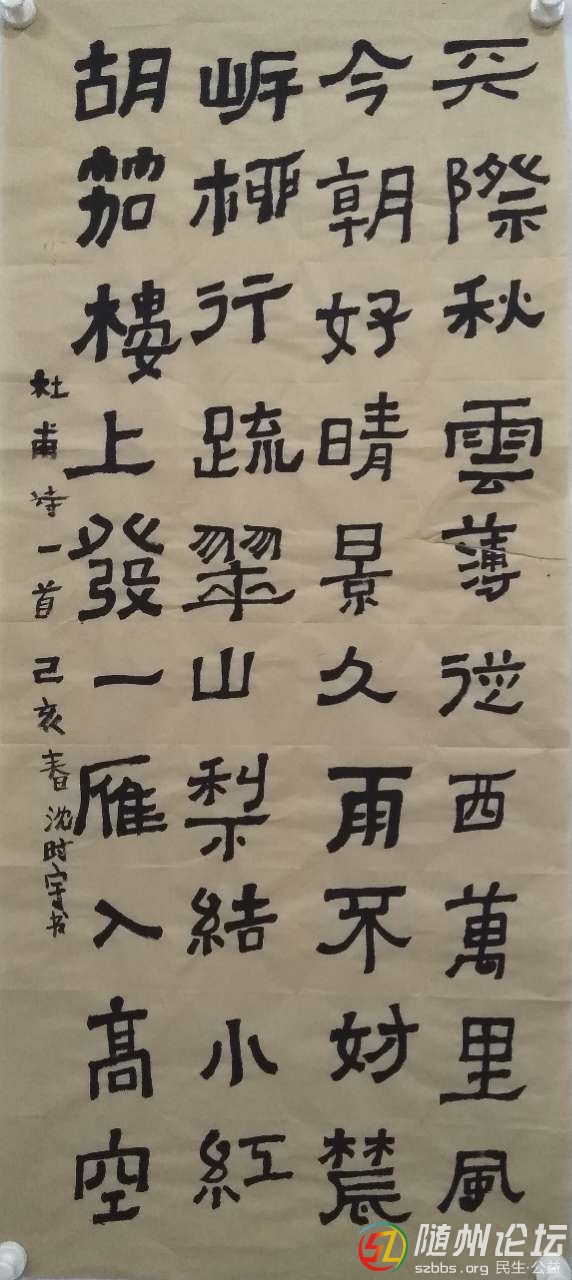 天際秋雲薄從西萬里風
今朝好晴景久雨不妨辳
岸柳行疏翠山梨結小紅
胡笳樓上發一雁入髙空
杜甫诗一首 己亥春沈时书
随州论坛
szbbs.org 民生·公益